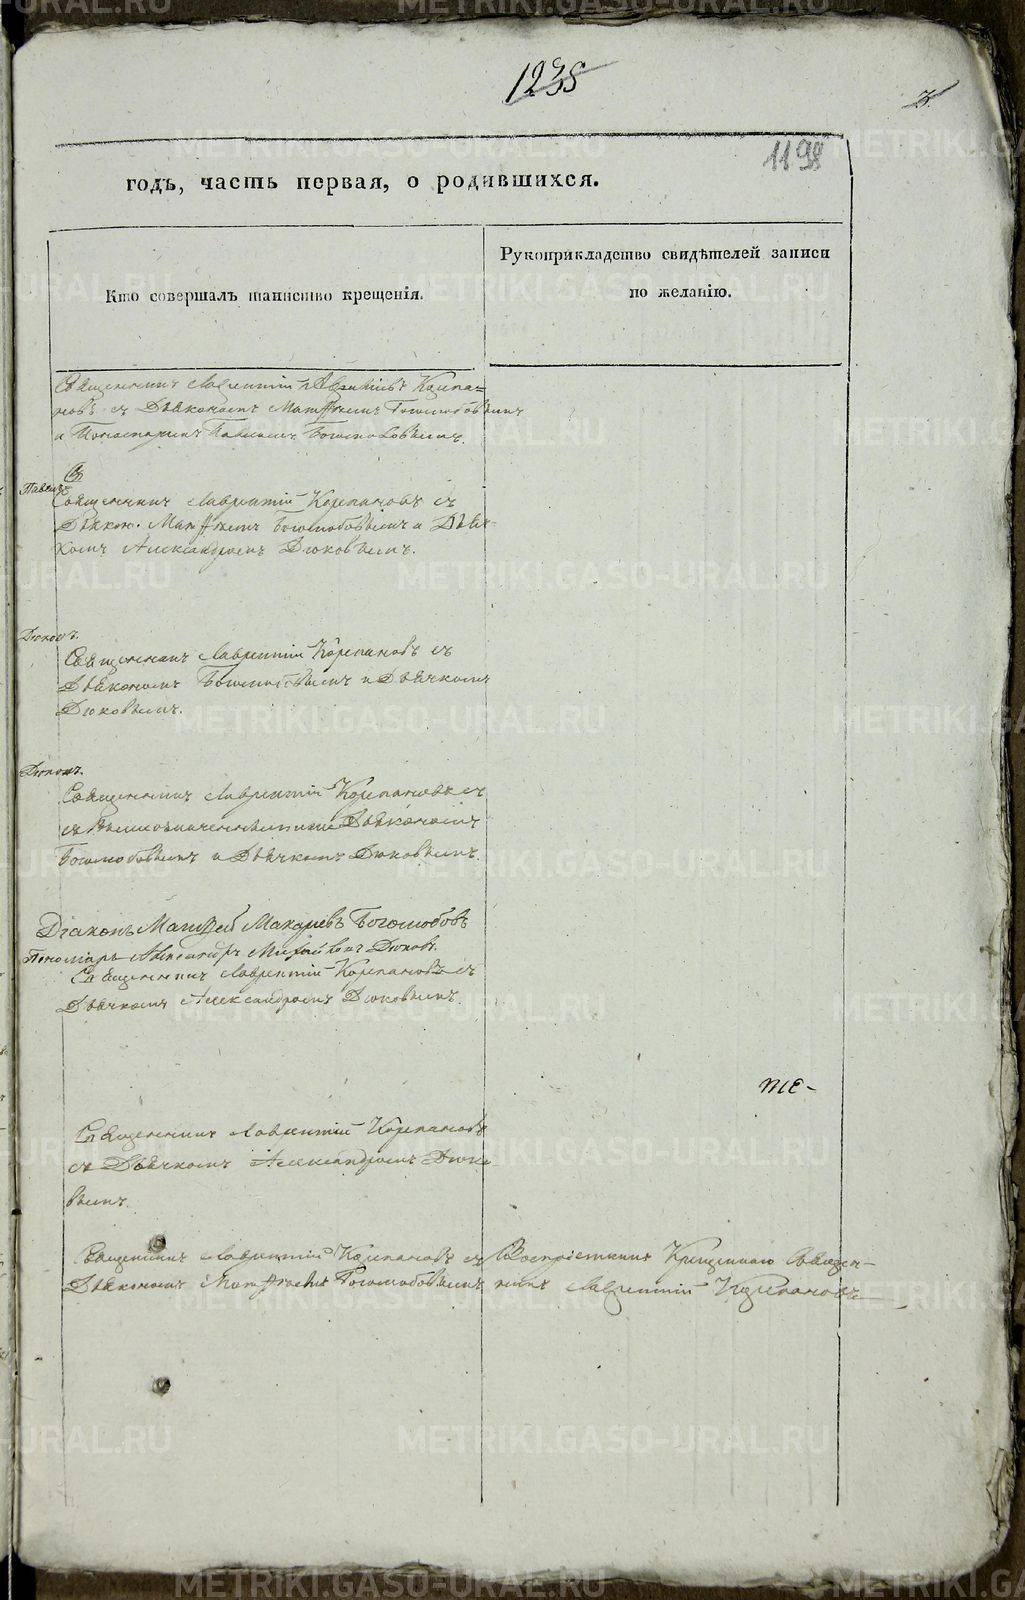 1238
3.
1198
годъ, часть первая, о родившихся.
Кто совершалъ таинство крещенія.
Рукоприкладство свидѣтелей записи
по желанію.
Священникъ Лаврентій Корепа=
новъ съ Діакономъ Матфѣемъ Боголюбовымъ
и Пономаремъ Боголюбовымъ.
Священникъ Лаврентій Корепановъ съ
Діакон. Матфѣемъ Боголюбовымъ и Дьяч-
комъ Александромъ Дюковымъ.
Дюковъ.
Священникъ Лаврентій Корепановъ съ
Діакономъ Боголюбовымъ и Дьячкомъ
Дюковымъ.
Дюковъ.
Священникъ Лаврентій Корепановъ съ
съ вышеозначенными Діакономъ
Боголюбовымъ и Дьячкомъ Дюковымъ.
Діаконъ Матвей Макаріевъ Боголюбовъ
Пономарь Александръ Дюковъ.
Священникъ Лаврентій Корепановъ съ
Дьячкомъ Александромъ Дюковымъ.
те-
Священникъ Лаврентій Корепановъ
съ Дьячкомъ Александромъ Дюко
вымъ.
Священникъ Лаврентій Корепановъ съ
Діакономъ Матфѣемъ Боголюбовымъ
Воспріемникъ Священ-
никъ Лаврентій Корепановъ
METRIKI.GASO-URAL.RU